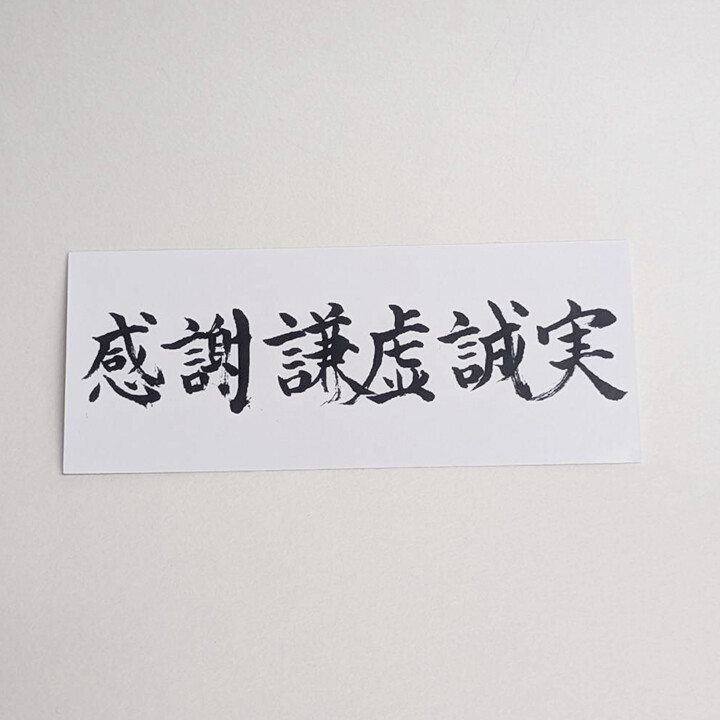 感謝 謙虚 誠実